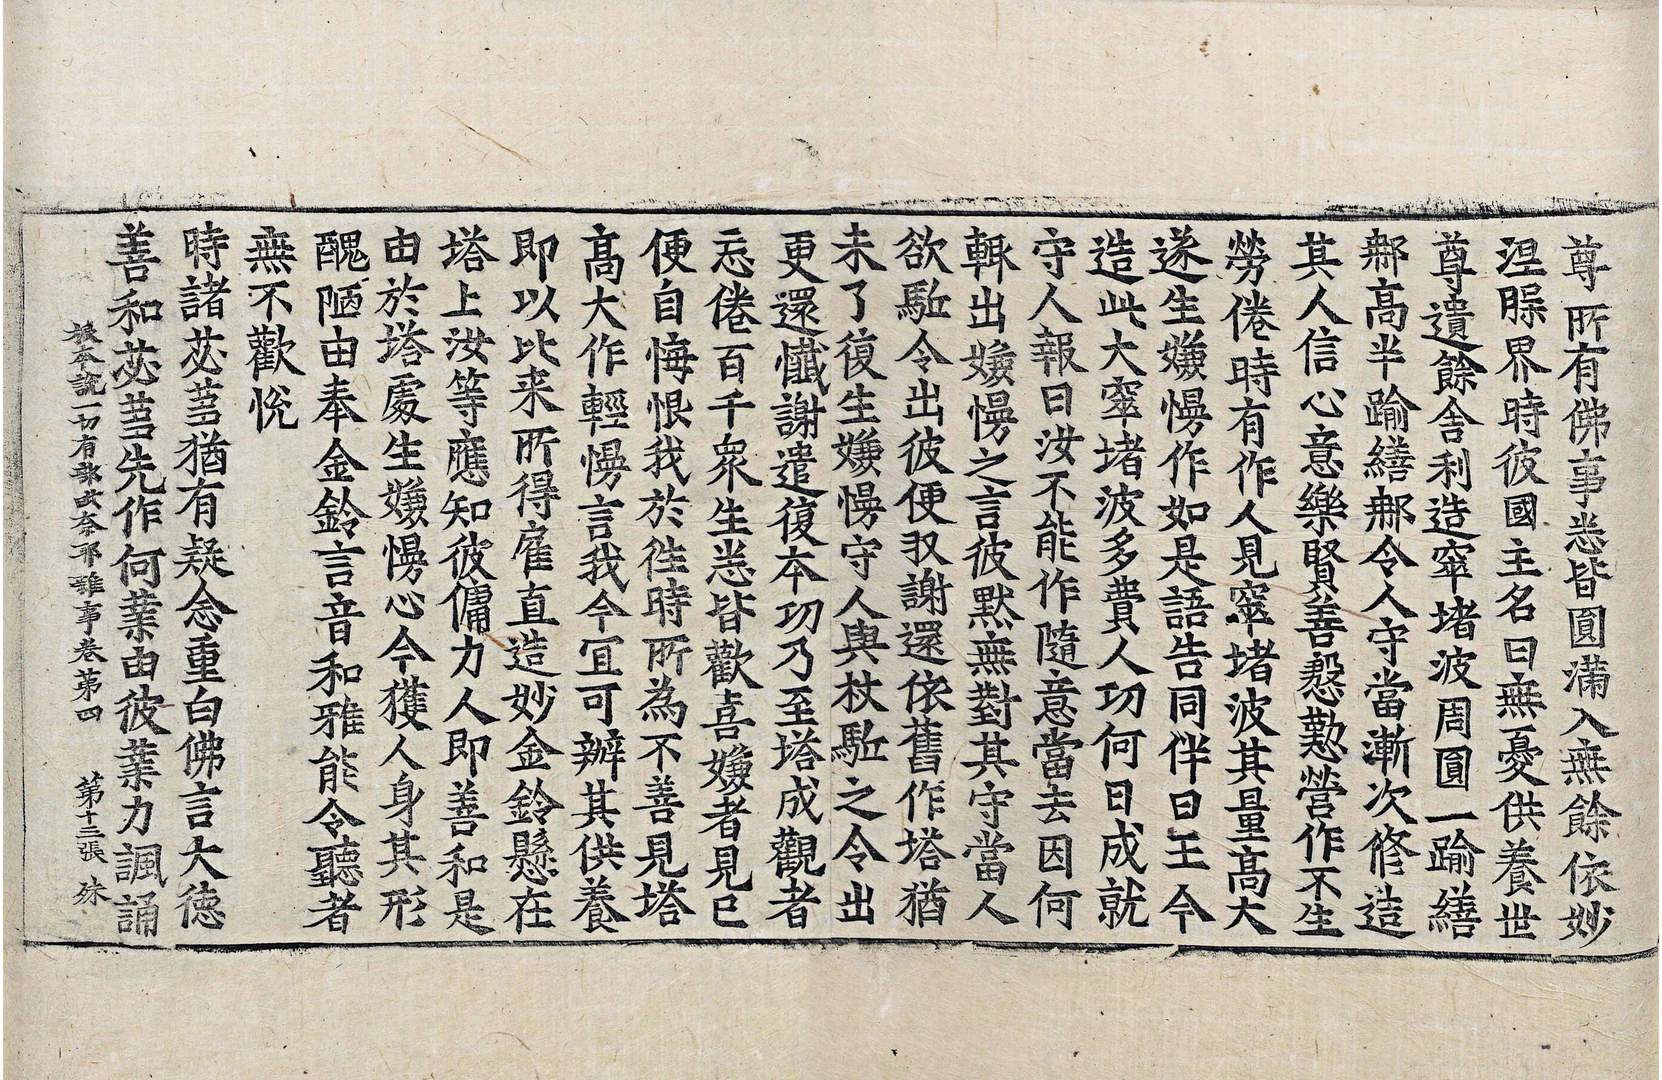 尊所有佛事悉皆圓滿入無餘依妙
涅槃界時彼國主名曰無憂供養世
尊遺餘舍利造窣堵波周圓一踰繕
那高半踰繕那令人守當漸次修造
其人信心意樂賢善慇懃營作不生
勞倦時有作人見窣堵波其量高大
遂生嫌慢作如是語告同伴曰王今
造此大窣堵波多費人功何日成就
守人報曰汝不能作隨意當去因何
輒出嫌慢之言彼默無對其守當人
欲駈令出彼便求謝還依舊作塔猶
未了復生嫌慢守人與杖駈之令出
更還懺謝遣復本功乃至塔成觀者
忘倦百千衆生悉皆歡喜嫌者見已
便自悔恨我於徃時所為不善見塔
高大作輕慢言我今宜可辦其供養
即以比来所得雇直造妙金鈴懸在
塔上汝等應知彼傭力人即善和是
由於塔處生嫌慢心今獲人身其形
醜陋由奉金鈴言音和雅能令聽者
無不歡悅
時諸苾蒭猶有疑念重白佛言大德
善和苾蒭先作何業由彼業力諷誦
根本說一切有部毗奈耶雜事卷第四 第十三張 殊